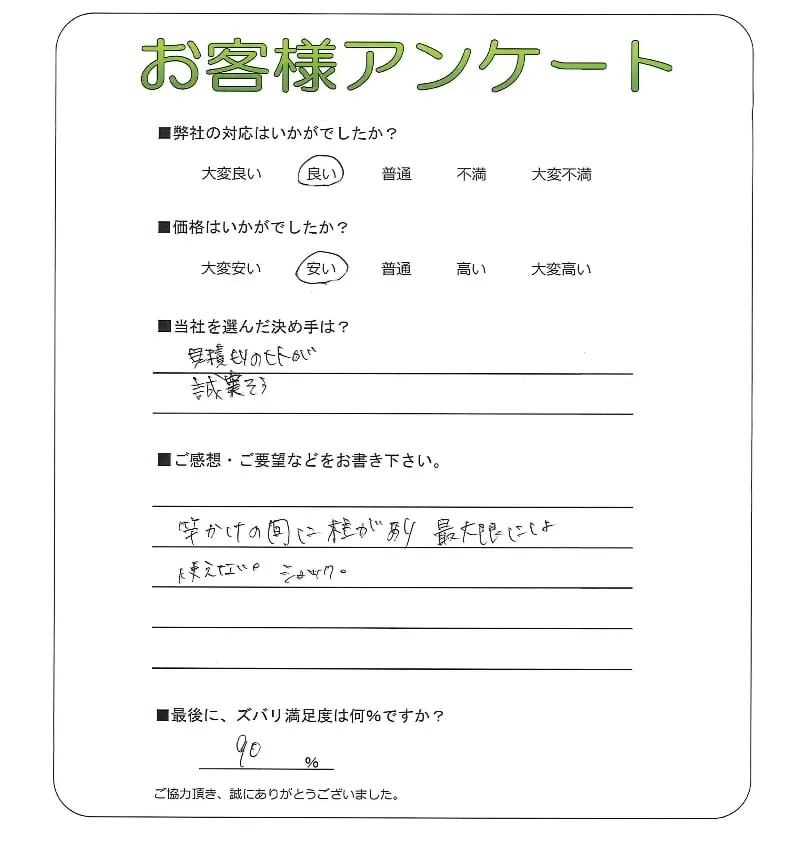 お客様アンケート
■弊社の対応はいかがでしたか？
大変良い 良い 普通 不満 大変不満
■価格はいかがでしたか？
大変安い 安い 普通 高い 大変高い
■当社を選んだ決め手は？
見積もりの七尺が
誠実そう
■ご感想・ご要望などをお書き下さい。
竿かけの間に柱があり 最大限には
使えない。ショック。
■最後に、ズバリ満足度は何％ですか？
90 ％
ご協力頂き、誠にありがとうございました。